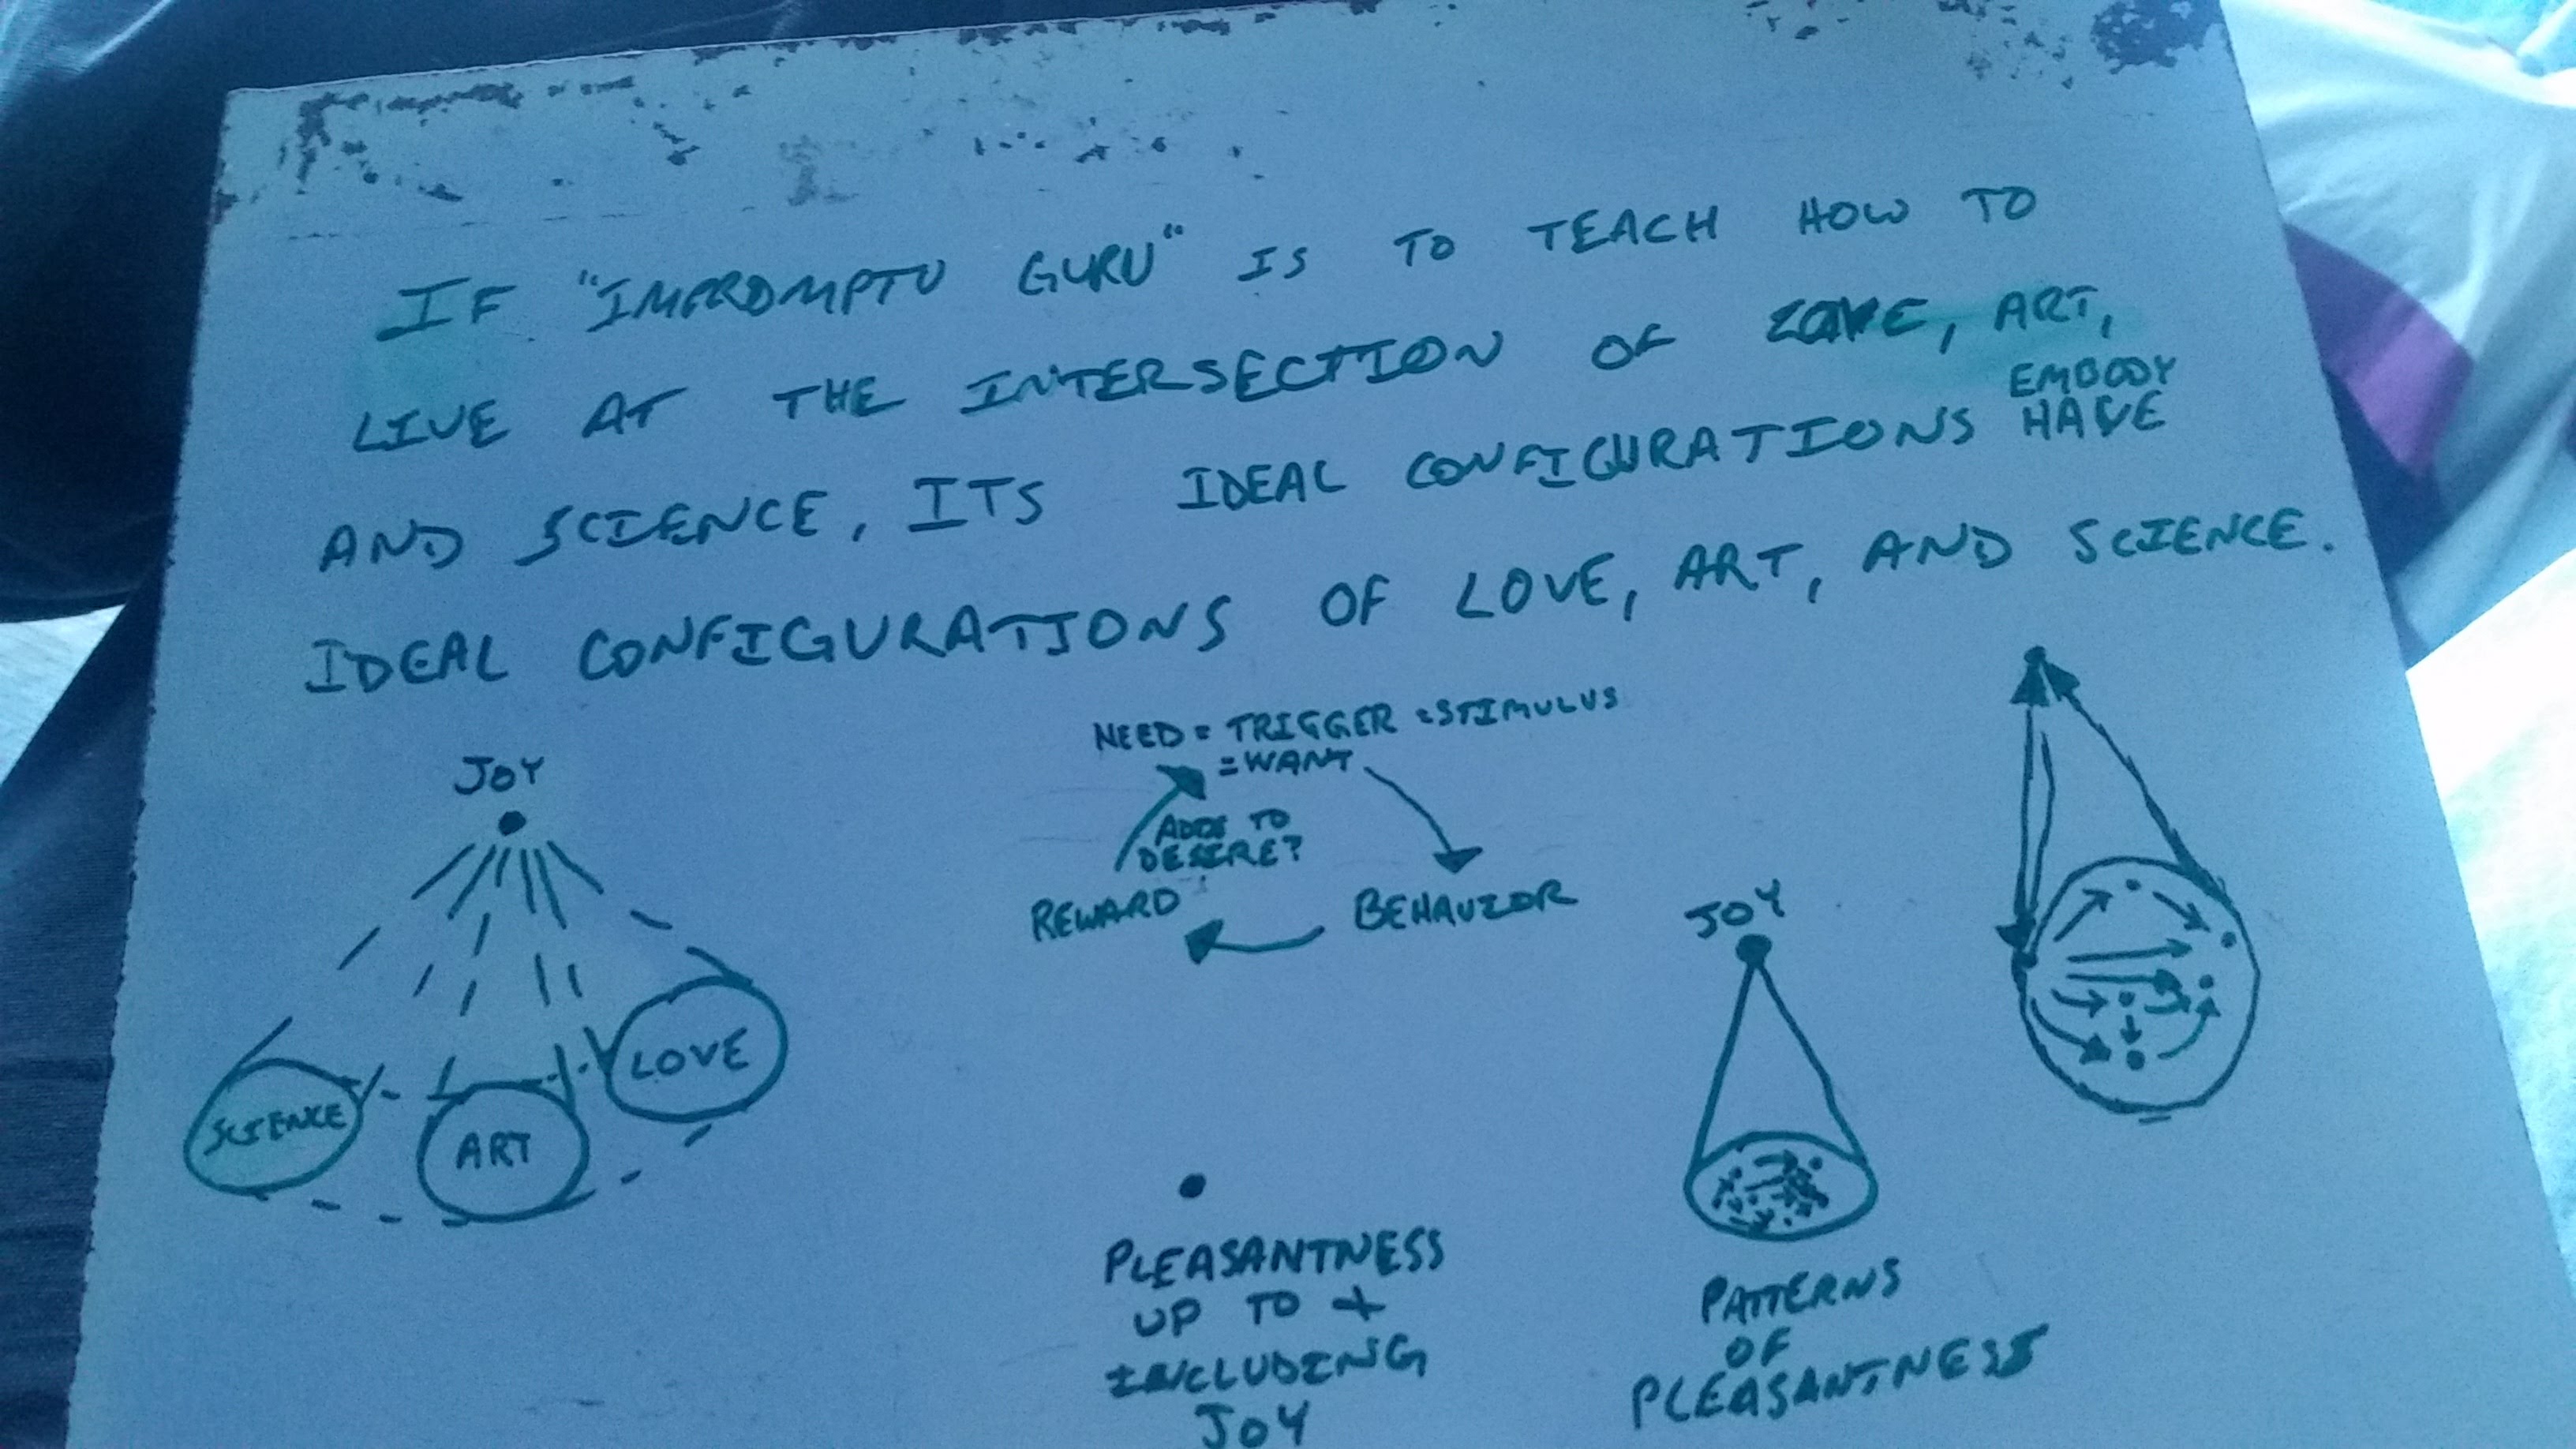 IF "IMPROMPTU GURU" IS TO TEACH HOW TO
LIVE AT THE INTERSECTION OF LOVE, ART,
EMBODY
AND SCIENCE, ITS IDEAL CONFIGURATIONS HAVE
IDEAL CONFIGURATIONS OF LOVE, ART, AND SCIENCE.
JOY
SCIENCE
ART
LOVE
NEED = TRIGGER = STIMULUS
= WANT
ADDS TO
DESIRE?
REWARD
BEHAVIOR
PLEASANTNESS
UP TO +
INCLUDING
JOY
JOY
PATTERNS
OF
PLEASANTNESS